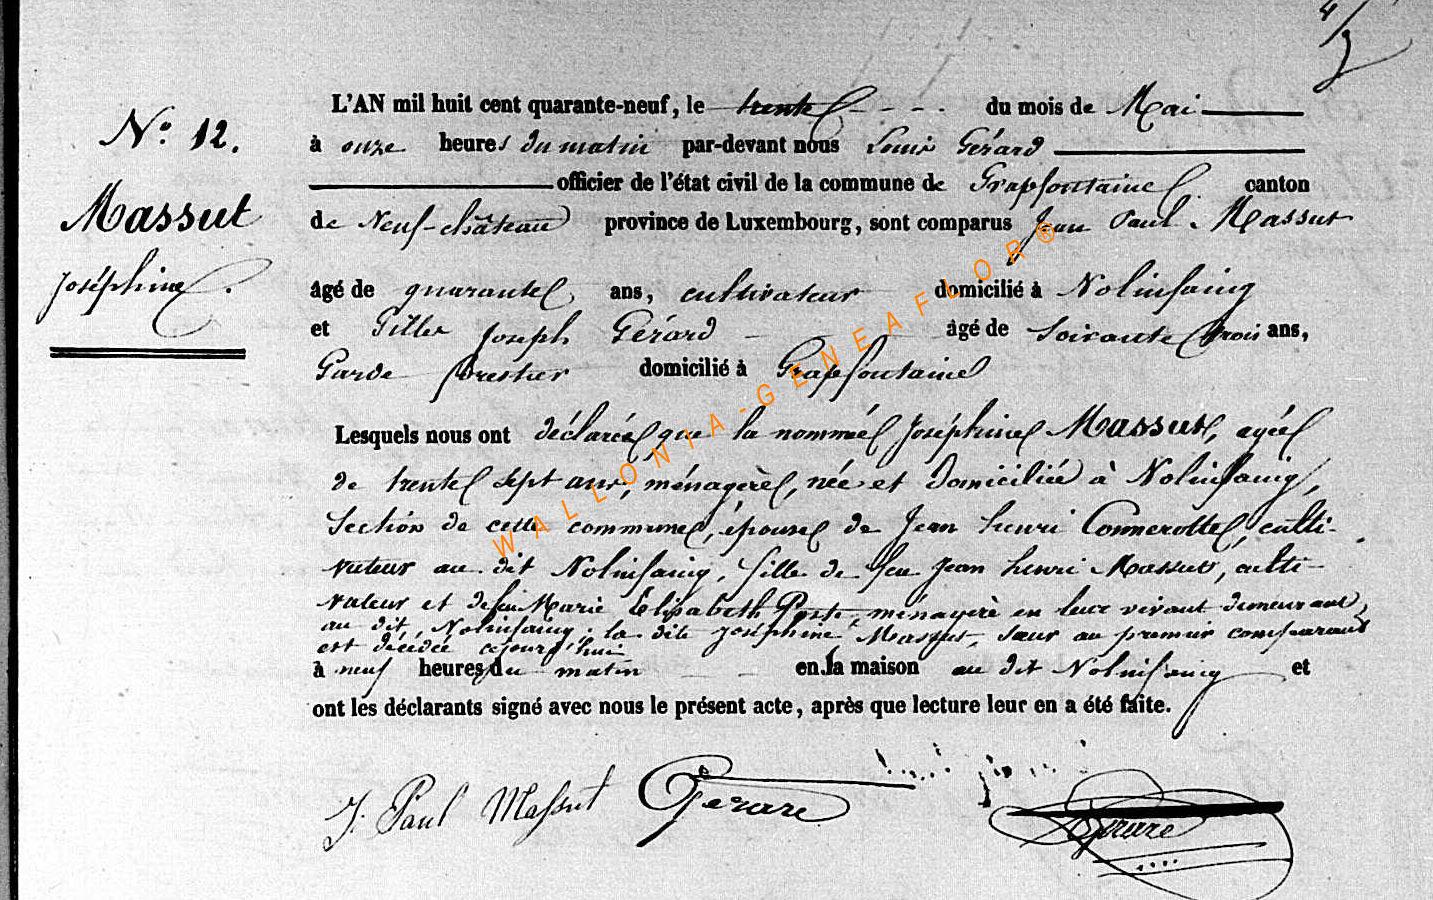 4/2
L'AN mil huit cent quarante-neuf, le trente du mois de Mai
N.º 12.
à onze heures du matin par-devant nous Louis Gérard
officier de l'état civil de la commune de Grapfontaine canton
Massut
de Neuf-château province de Luxembourg, sont comparus Jean Paul Massut
Joséphine.
âgé de quarante ans, cultivateur domicilié à Nolinfaing
et Gilles Joseph Gérard âgé de Soixante trois ans,
Garde forestier domicilié à Grapfontaine
Lesquels nous ont déclarée que la nommée Joséphine Massut, agée
de trente sept ans, ménagère, née et domiciliée à Nolinfaing,
Section de cette commune, épouse de Jean henri Connerotte, culti-
vateur au dit Nolinfaing, fille de feu Jean henri Massut, culti-
vateur et de feu Marie Elisabeth ménagère en leur vivant demeurant
au dit Nolinfaing; la dite Joséphine Massut, sœur au premier comparant
est décédée cejourd'hui
à neuf heures du matin en la maison au dit Nolinfaing et
ont les déclarants signé avec nous le présent acte, après que lecture leur en a été faite.
J. Paul Massut Gérard Gérard
WALLONIA-GENEAFLOR®